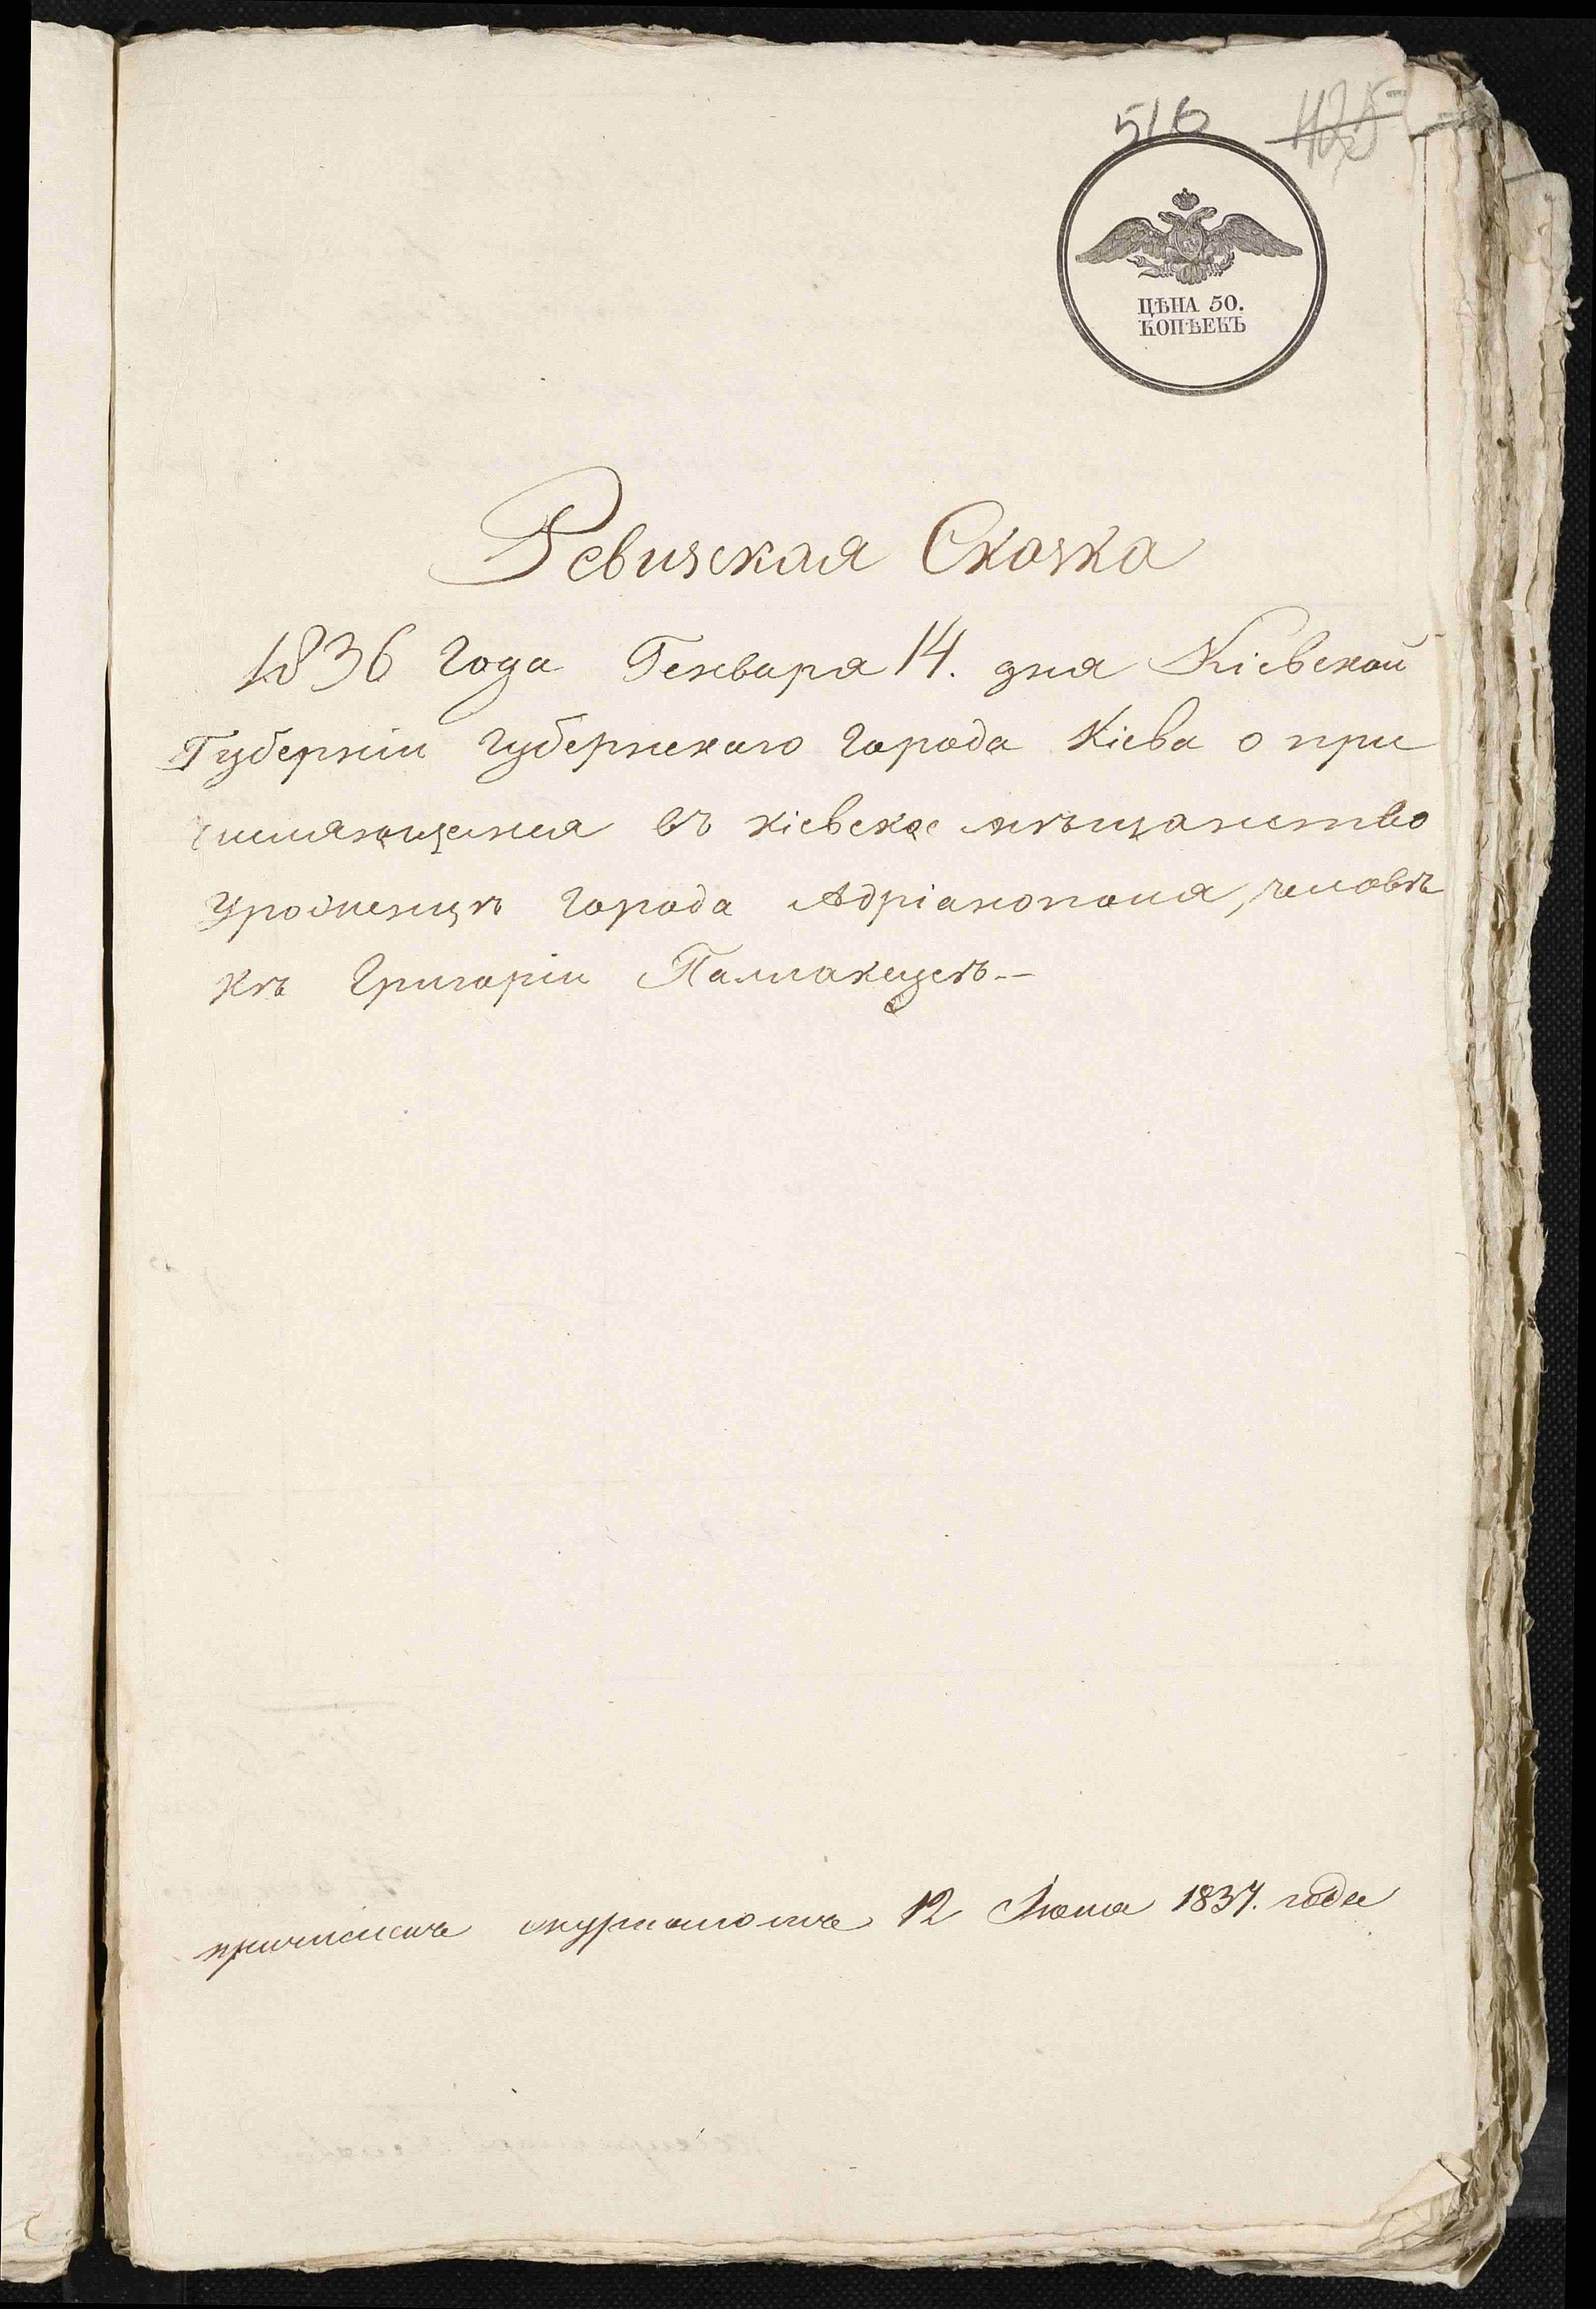 516 425
ЦѢНА 50.
КОПѢЕКЪ
Ревизская Сказка
1836 года Генваря 14. дня Кіевской
Губерніи губернскаго города Кіева о при
числяющемся въ кіевское мѣщанство
уроженцѣ города Адріанополя, человѣ
кѣ Григоріи
причисленъ 12 1837. года